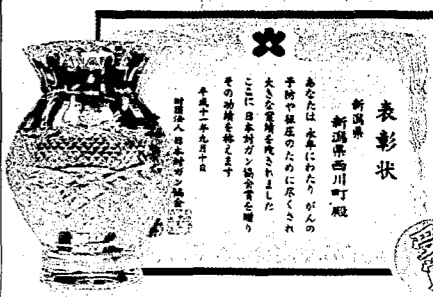 表彰状
新潟県
新潟県西川町殿
あなたは 永年にわたり がんの
予防や征圧のために尽くされ
大きな業績を残されました
ここに 日本対ガン協会賞を贈り
その功績を称えます
平成十一年九月十日
財団法人 日本対ガン協会